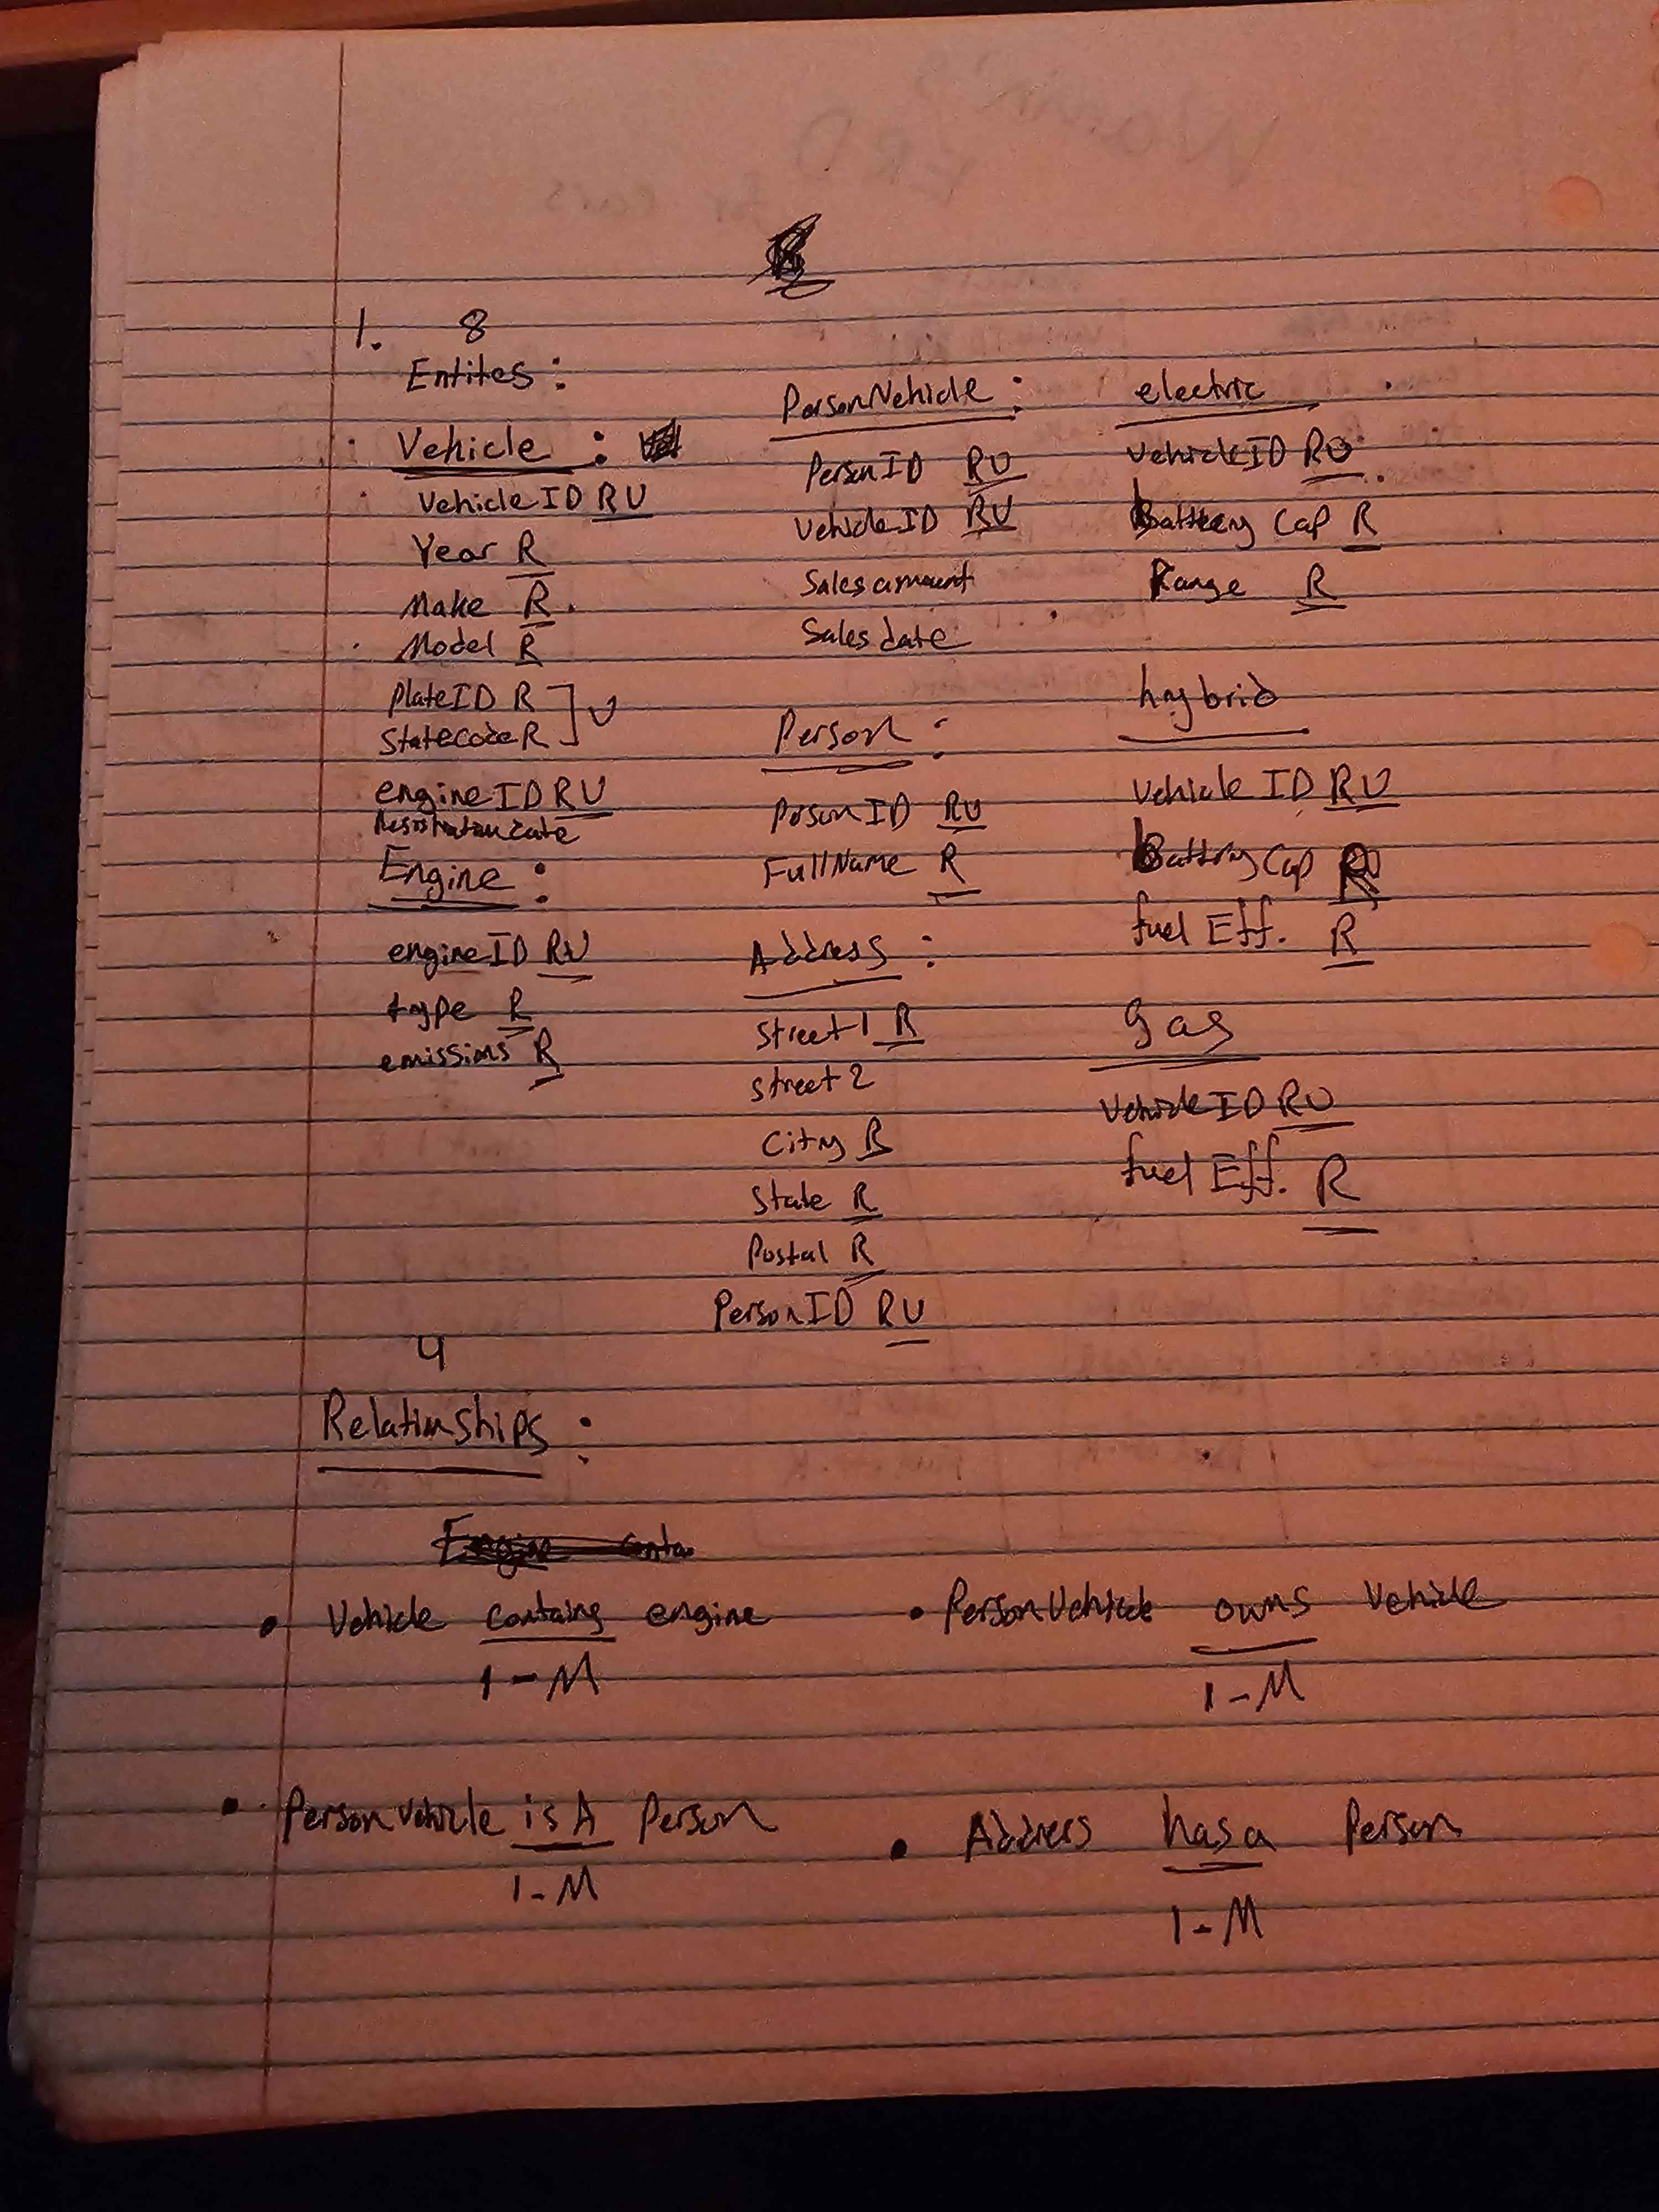 1. 8
Entites :
Vehicle :
Vehicle ID RU
Year R
Make R.
Model R
PlateID R
StatecodeR ] U
engine ID RU
Engine :
engineID RU
type R
emissions R
Person/Vehicle :
Person ID RU
VehicleID RU
Sales amount
Sales date
Person :
Person ID RU
FullName R
Address :
Street 1 R
Street 2
City R
State R
Postal R
PersonID RU
electric
VehicleID RU
Battery Cap R
Range R
hybrid
Vehicle ID RU
Battery Cap R
fuel Eff. R
gas
VehicleID RU
fuel Eff. R
4
Relatinships :
• Vehicle contains engine
1-M
• PersonVehicle owns Vehicle
1-M
• Person Vehicle is A Person
1-M
• Address has a Person
1-M